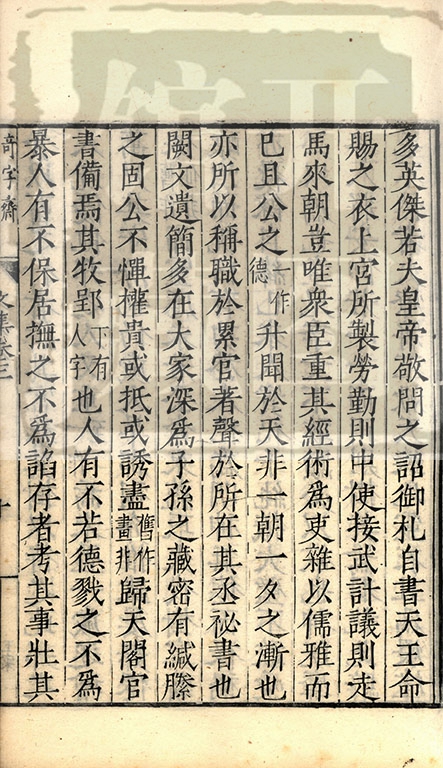 多英傑若夫皇帝敬問之詔御札自書天王命
賜之衣上宮所製勞勤則中使接武計議則走
馬來朝豈唯衆臣重其經術為吏雜以儒雅而
已且公之一作德升聞於天非一朝一夕之漸也
亦所以稱職於累官著聲於所在其丞祕書也
闕文遺簡多在大家深為子孫之藏密有緘縢
之固公不憚權貴或抵或誘盡舊作畫非歸天閣官
書備焉其牧郢下有人字也人有不若德戮之不為
暴人有不保居撫之不為諂存者考其事壯其
奇字齋
文集卷三